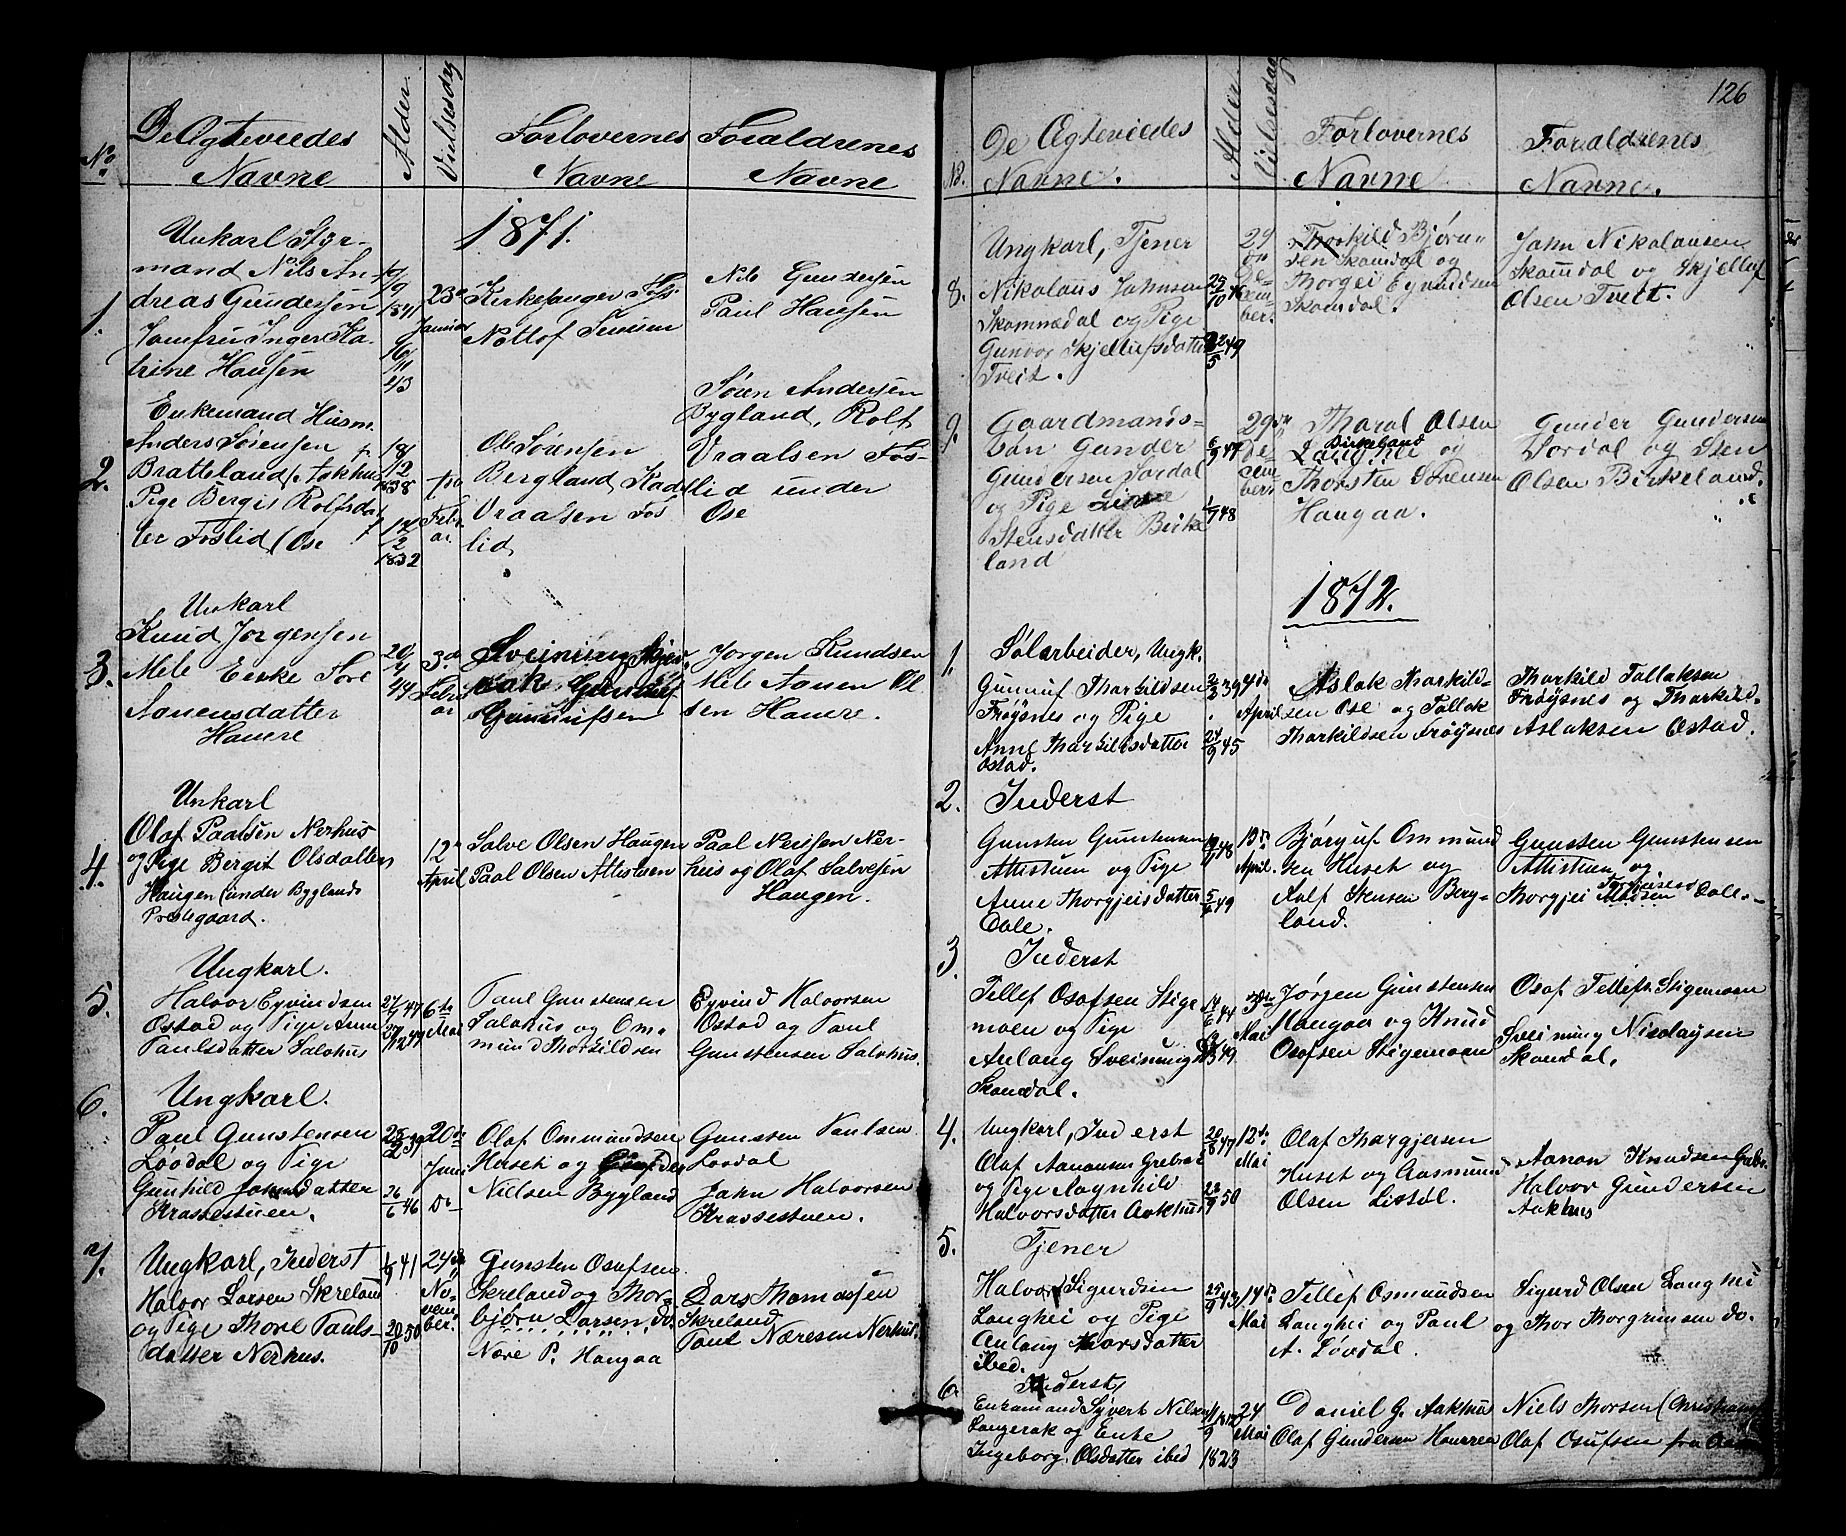 126
No.
De Ægteviedes
Navne
Alder
Vielsesdag
Forlovernes
Navne
Foraldrenes
Navne
1871.
1.
Unkarl Styr-
mand Nils An-
dreas Gundersen
Jomfru Inger Ka-
trine Hansen
19/9
1841
16/11
43
23de
Januar
Kirkesanger
Notlof
Nils Gundersen
Paul Hansen
2.
Enkemand Husm.
Anders Sörensen
Bratteland (Aakhus
Pige Bergit Rolfsdat
ter Foslid (Ose
18/12
1838
12/2
1832
Febr
ar
Ole Sørensen
Bergland
Vraalsen Fos
lid
Sören Andersen
Bygland, Rolf
Vraalsen Fos-
lid under
Ose
3.
Unkarl
Knud Jorgensen
Mele Enke Tore
Aanensdatter
Havere
20/4
44
3d
Febru
ar
Sveinung
Gunnufsen
Jorgen Kundsen
Mele Aanen Ol
sen Havere.
4.
Unkarl
Olaf Paalsen Nerhus
og Pige Bergit Olsdatter
Haugen (under Byglands
Prestegaard.
12te
April
Salve Olsen Haugen
Paal Olsen Attistuen
Paal Neirsen Ner-
hus og Olaf Salvesen
Haugen.
5.
Ungkarl.
Halvor Eyvindsen
Ostad og Pige Anne
Paulsdatter Salohus
27/4 47
27/12 47
6te
Mai
Paul Gunstensen
Salohus og Om-
mund Thorkildsen
Eyvind Halvorsen
Ostad og Paul
Gunstensen Salohus.
6.
Ungkarl.
Paul Gunstensen
Lövdal og Pige
Gunhild Johnsdatter
Krassestuen.
25/2 39
26/6 46
20de
Juni
Do
Olaf Ommundsen
Huset og Gunder
Nielsen Bygland
Gunsten Paulsen
Lovdal
John Halvorsen
Krassestuen.
7.
Ungkarl, Inderst
Halvor Larsen Skreland
og Pige Thore Pauls-
datter Nerhus.
1/9 41
20/10 50
24de
No-
vem
ber.
Gunsten Osufsen
Skreland og Thor-
bjørn Larsen, do.
Nære P. Haugaa
Lars Thomassen
Skreland
Paul Næresen Nerhus.
No.
De Ægteviedes
Navne.
Alder
Vielsesdag
Forlovernes
Navne
Foraldrenes
Navne.
8.
Ungkarl, Tjener
Nikolaus Johnsen
Skomedal og Pige
Gunvor Skjellufsdatter
Tveit.
25/10 46
22/5 49
29
De-
cem
ber.
Thorkild Bjørn-
sen Skomdal og
Thorgei Eyvindsen
Skomdal.
John Nikolausen
Skomdal og Skjelluf
Olsen Tveit.
9.
Gaardmands-
søn Gunder
Gundersen Sordal
og Pige
Stensdatter Birke
land
6/9 47
1/7 48
29de
De
cem
ber.
Tharal Olsen
Birkeland
Langhei og
Thorsten Sörensen
Haugaa.
Gunder Gundersen
Sordal og Sten
Olsen Birkeland.
1872.
1.
Sølarbeider, Ungk.
Gunnuf Tharkildsen
Frøysnes og Pige
Anne Tharkildsdatter
Ostad.
39
24/9 45
4de
April
Aslak Tharkild-
sen Ose og Tallak
Tharkildsen Frøysnes
Tharkild Tallaksen
Frøysnes og Tharkild
Aslaksen Ostad.
2.
Inderst
Gunsten Gunstensen
Attistuen og Pige
Anne Thorgjeisdatter
Dale.
48
49
13de
April
Bjørguf Ommund
sen Huset og
Rolf Stensen Berg-
land.
Gunsten Gunstensen
Attistuen og
Thorgjei Dale.
3.
Inderst
Tellef Osofsen Stige
moen og Pige
Anlaug Sveinungsd
Skomdal.
14/6 44
49
3die
Mai
Jørgen Gunstensen
Haugaa og Knud
Osofsen Stigemoen
Osof Tellefs. Stigemoen
Sveinung Nicolaysen
Skomdal.
4.
Ungkarl, Inderst
Olaf Aanonsen Grebrok
og Pige Aagnhild
Halvorsdatter Aakhus
20/8 47
23/9 50
12te
Mai
Olaf Thorgjersen
Huset og Aasmund
Olsen Lisdal.
Aanon Knudsen
Halvor Gundersen
Aakhus
5.
Tjener
Halvor Sigurdsen
Langhei og Pige
Anlaug Thorsdatter
ibed.
25/9 43
14de
Mai
Tellef Osmundsen
Langhei og Paul
A. Lövdal.
Sigurd Olsen Langhei
og Thor Thorgrimsen do.
6.
Inderst
Enkemand Syvert Nilsen
Langerak og Enke
Ingeborg Olsdatter ibed
1823
24
Mai
Daniel G. Aakhus
Olaf Gundersen Haurren
Niels Thorsen (Christians
Olaf Osufsen fra